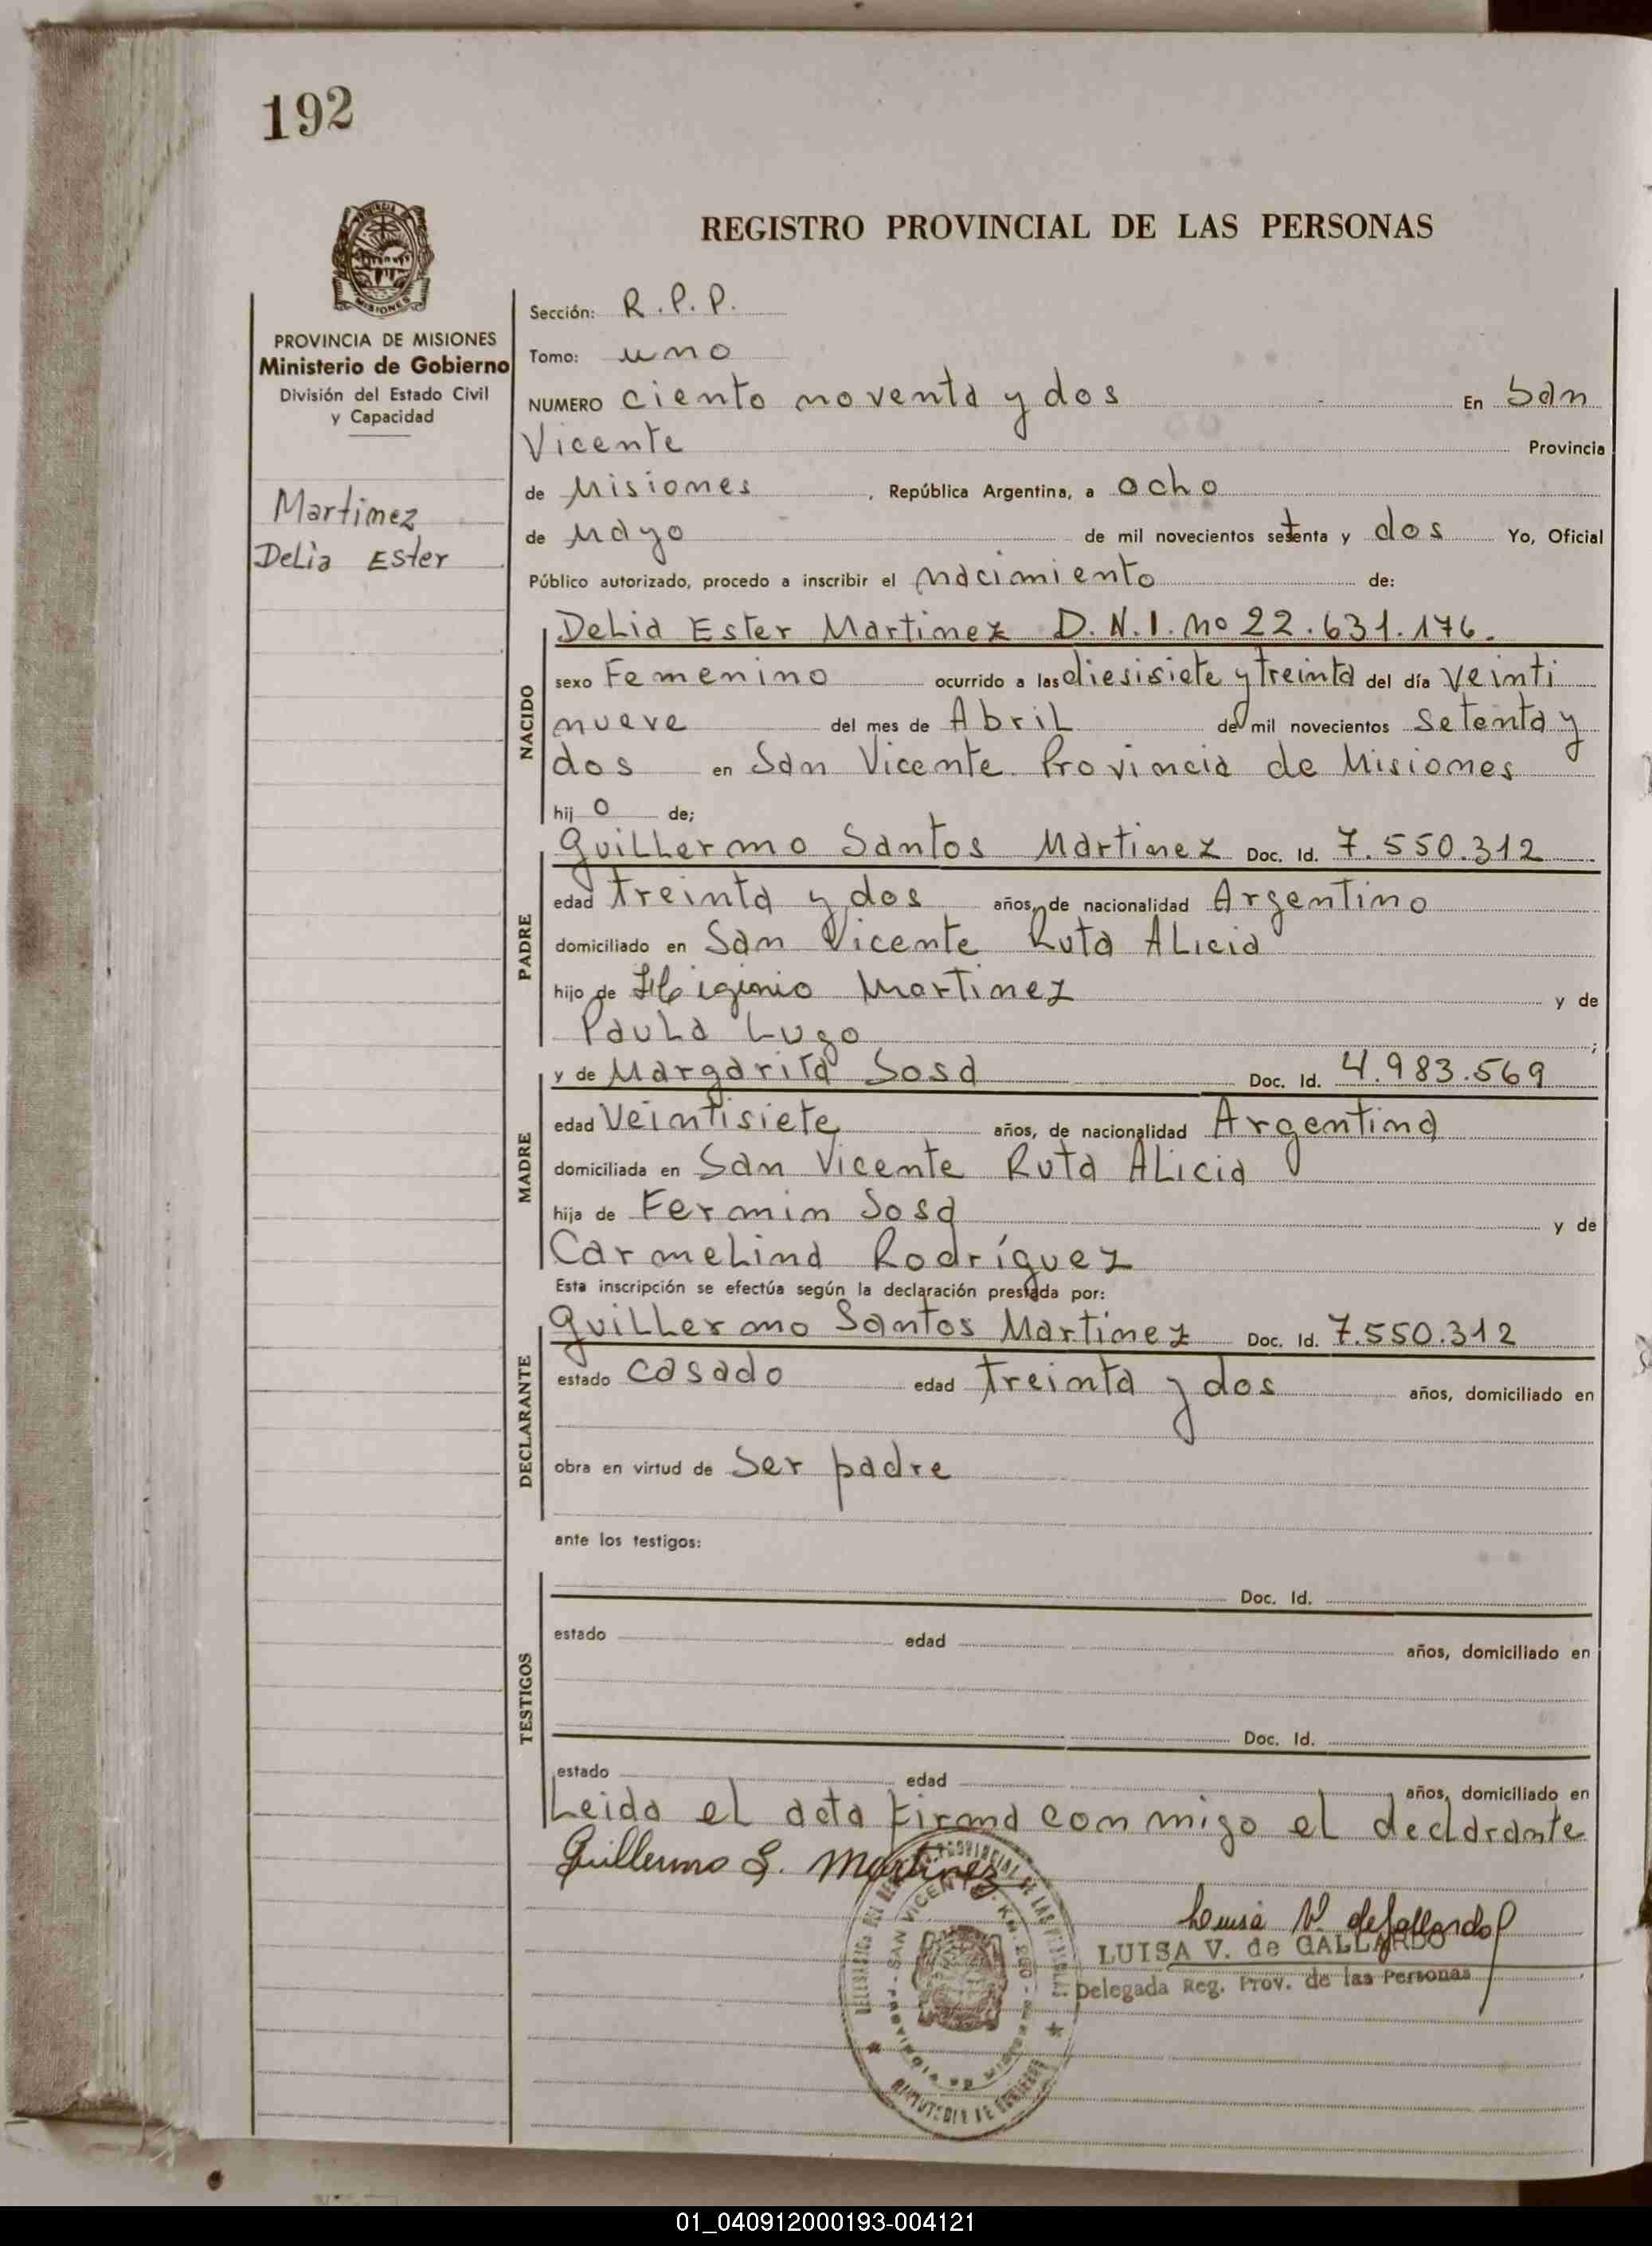 192
REGISTRO PROVINCIAL DE LAS PERSONAS
PROVINCIA DE MISIONES
Ministerio de Gobierno
División del Estado Civil
y Capacidad
Martinez
Delia Ester
Sección: R.P.P.
Tomo: uno
NUMERO ciento noventa y dos En San
Vicente Provincia
de Misiones, República Argentina, a ocho
de Mayo de mil novecientos setenta y dos Yo, Oficial
Público autorizado, procedo a inscribir el nacimiento de:
NACIDO
Delia Ester Martinez D.N.I. Nº 22.631.176.
sexo Femenino ocurrido a las diesisiete y treinta del día veinti
nueve del mes de Abril de mil novecientos setenta y
dos en San Vicente Provincia de Misiones
hijo de;
PADRE
Guillermo Santos Martinez Doc. Id. 7.550.312
edad treinta y dos años, de nacionalidad Argentino
domiciliado en San Vicente Ruta Alicia
hijo de Higinio Martinez y de
Paula Lugo;
MADRE
y de Margarita Sosa Doc. Id. 4.983.569
edad Veintisiete años, de nacionalidad Argentina
domiciliada en San Vicente Ruta Alicia
hija de Fermin Sosa y de
Carmelina Rodríguez
Esta inscripción se efectúa según la declaración prestada por:
DECLARANTE
Guillermo Santos Martinez Doc. Id. 7.550.312
estado casado edad treinta y dos años, domiciliado en
obra en virtud de ser padre
ante los testigos:
TESTIGOS
Doc. Id.
estado edad años, domiciliado en
Doc. Id.
estado edad años, domiciliado en
Leida el acta firma conmigo el declarante
Guillermo S. Martinez
Luisa V. de Gallardo
LUISA V. de GALLARDO
Delegada Reg. Prov. de las Personas
SAN VICENTE - KM.
PROVINCIA DE MISIONES
01_040912000193-004121